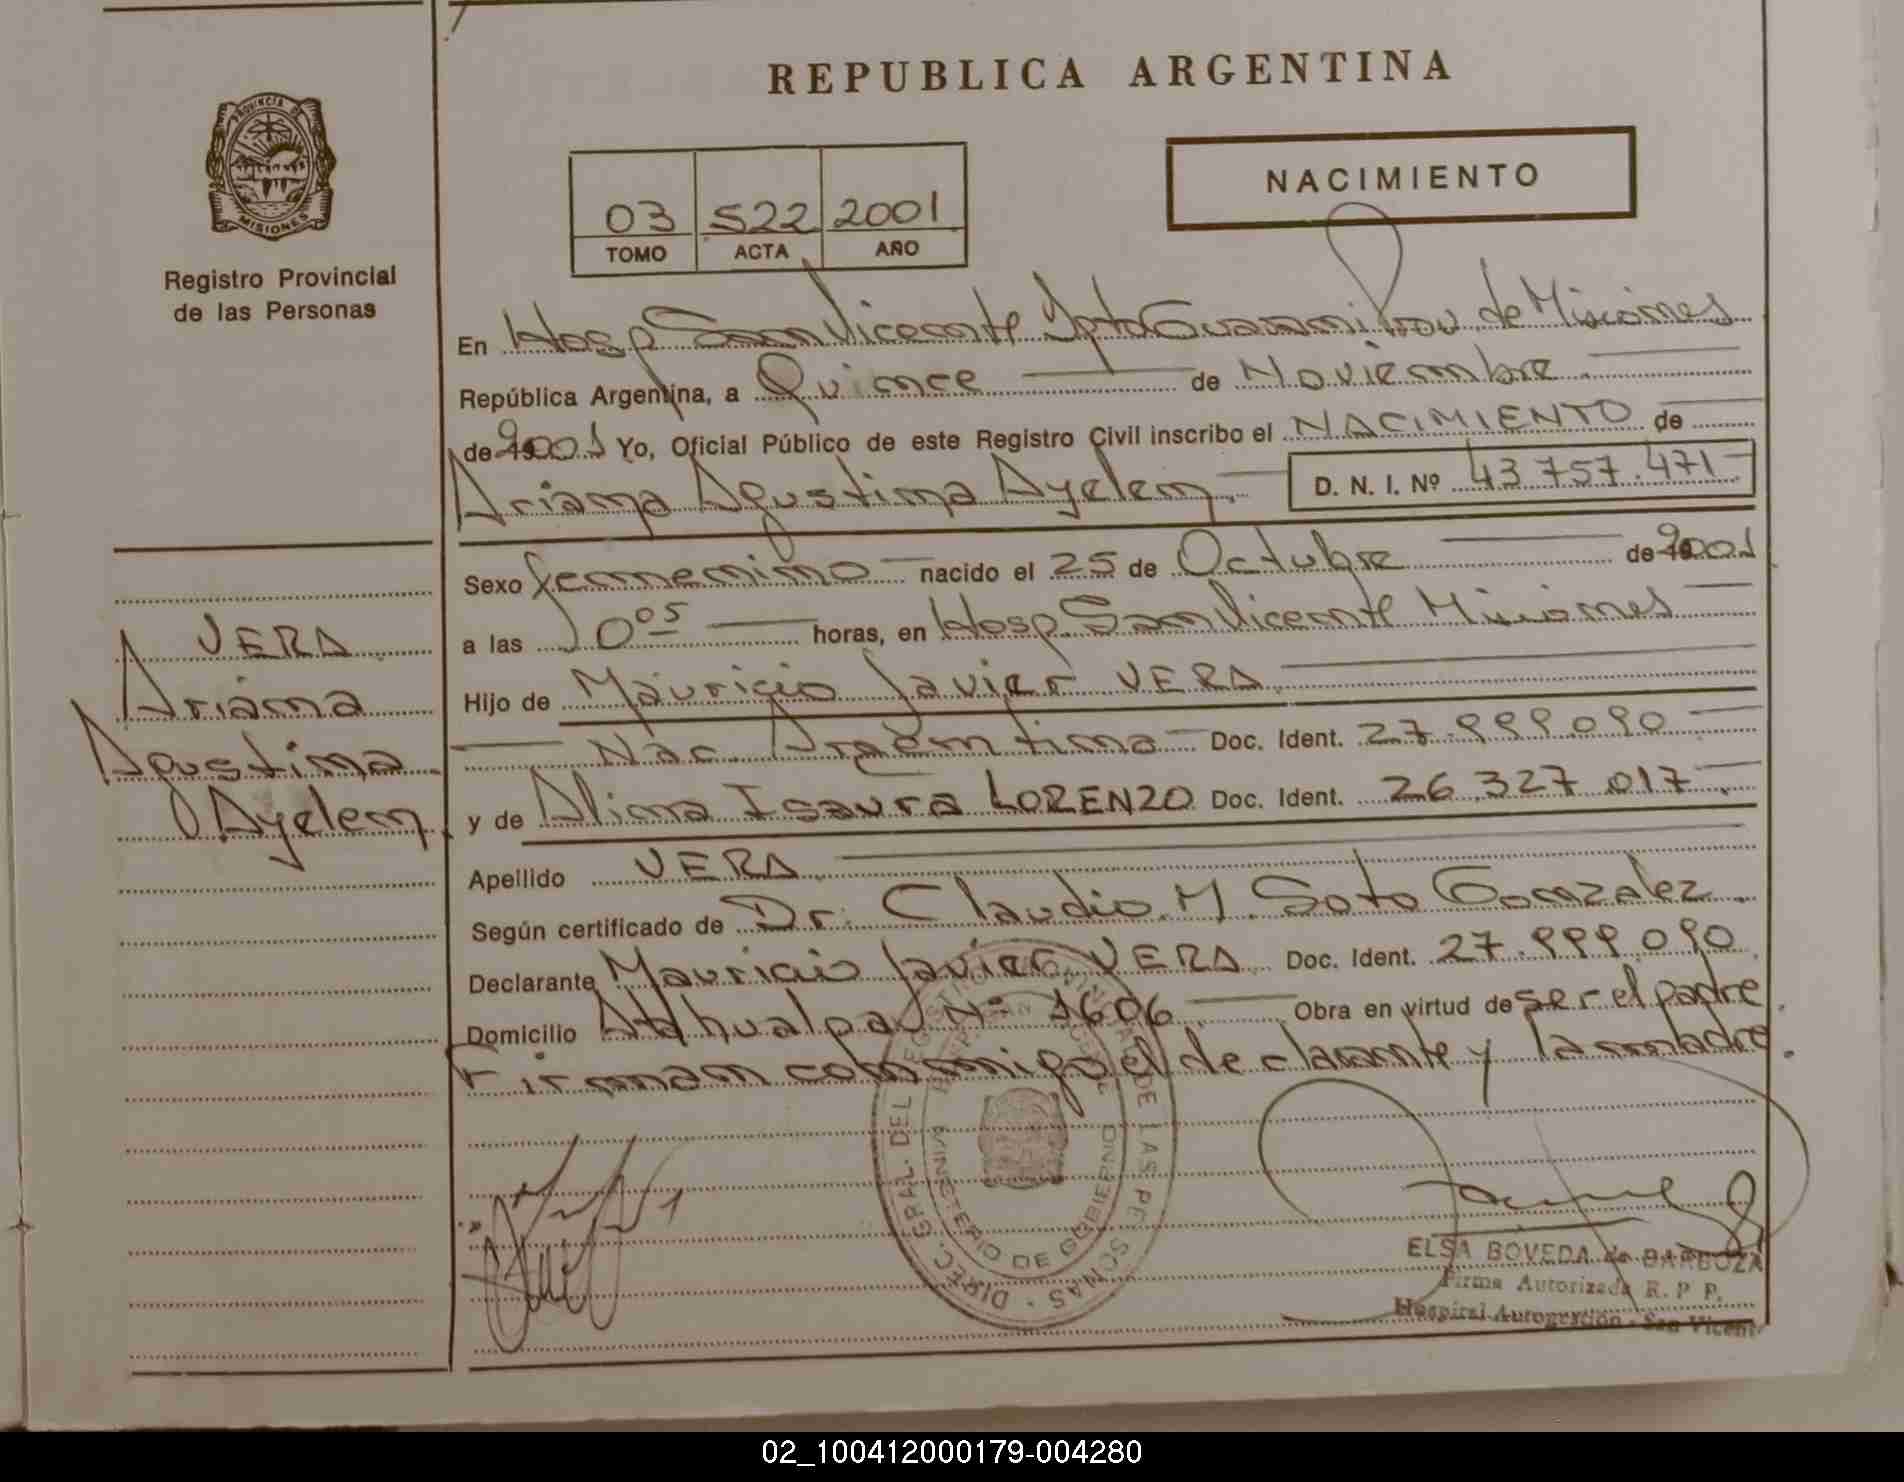 REPUBLICA ARGENTINA
PROVINCIA DE
MISIONES
Registro Provincial
de las Personas
03 522 2001
TOMO ACTA AÑO
NACIMIENTO
En Hosp San Vicente Dpto Guarani Prov. de Misiones
República Argentina, a Quince de Noviembre
de 2001 Yo, Oficial Público de este Registro Civil inscribo el NACIMIENTO de
Ariana Agustina Ayelen. D. N. I. Nº 43 757.471
Sexo femenino nacido el 25 de Octubre de 2001
a las 10 05 horas, en Hosp. San Vicente Misiones
Hijo de Mauricio Javier VERA
Nac. Argentina Doc. Ident. 27.999.090
y de Alina Isaura LORENZO Doc. Ident. 26.327.017
Apellido VERA
Según certificado de Dr. Claudio M. Soto Gonzalez
Declarante Mauricio Javier VERA Doc. Ident. 27.999.090
Domicilio Atahualpa Nº 1606 Obra en virtud de ser el padre.
Firman conmigo el declarante y la madre.
VERA
Ariana
Agustina
Ayelen
DIREC. GRAL. DEL REGISTRO PROVINCIAL DE LAS PERSONAS
MINISTERIO DE GOBIERNO
ELSA BOVEDA de BARBOZA
Firma Autorizada R. P. P.
Hospital Autogestión - San Vicente
02_100412000179-004280